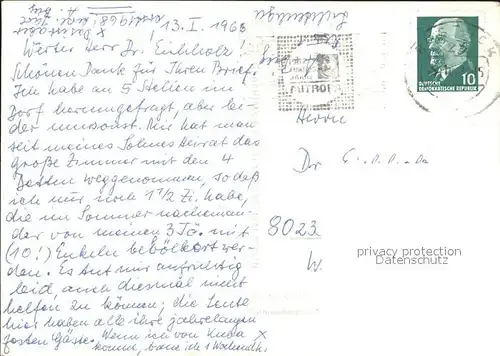 13. I. 1968
Werter Herr Dr. Eichholz!
Schönen Dank für Ihren Brief.
Ich habe an 5 Stellen im
Dorf herumgefragt, aber lei-
der umsonst. Mir hat man
seit meines Sohnes Heirat das
große Zimmer mit den 4
Betten weggenommen, sodaß
ich nur noch 1 1/2 Zi. habe,
die im Sommer nacheinan-
der von meinen 3 Tö. mit
(10!) Enkeln bevölkert wer-
den. Es tut mir aufrichtig
leid auch diesmal nicht
helfen zu können; die Leute
hier haben alle ihre jahrelangen
festen Gäste. Wenn ich von
MITROPA
10
DEUTSCHE
DEMOKRATISCHE REPUBLIK
Herrn
Dr
8023
W.
privacy protection
www.ansichtskartenversand.com